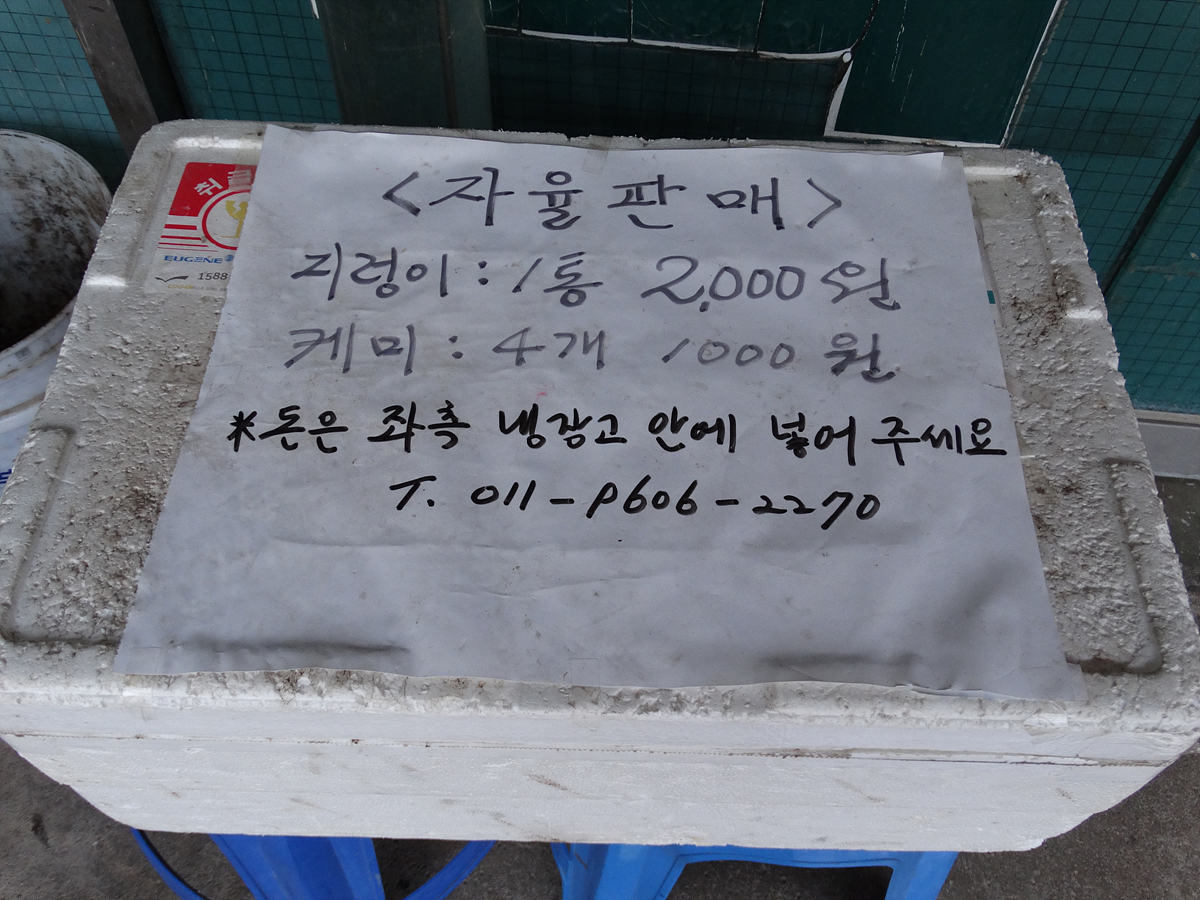 <자율판매>
지렁이 : 1통 2,000원
케미 : 4개 1000원
*돈은 좌측 냉장고 안에 넣어 주세요
T. 011-9606-2270
EUGENE
1588